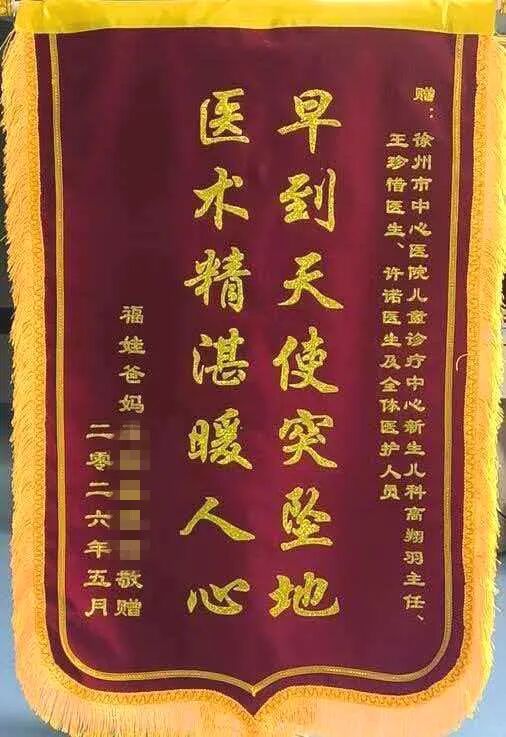 赠：徐州市中心医院儿童诊疗中心新生儿科高翔羽主任、
王珍惜医生、许诺医生及全体医护人员
早到天使突坠地
医术精湛暖人心
福娃爸妈 敬赠
二零二六年五月